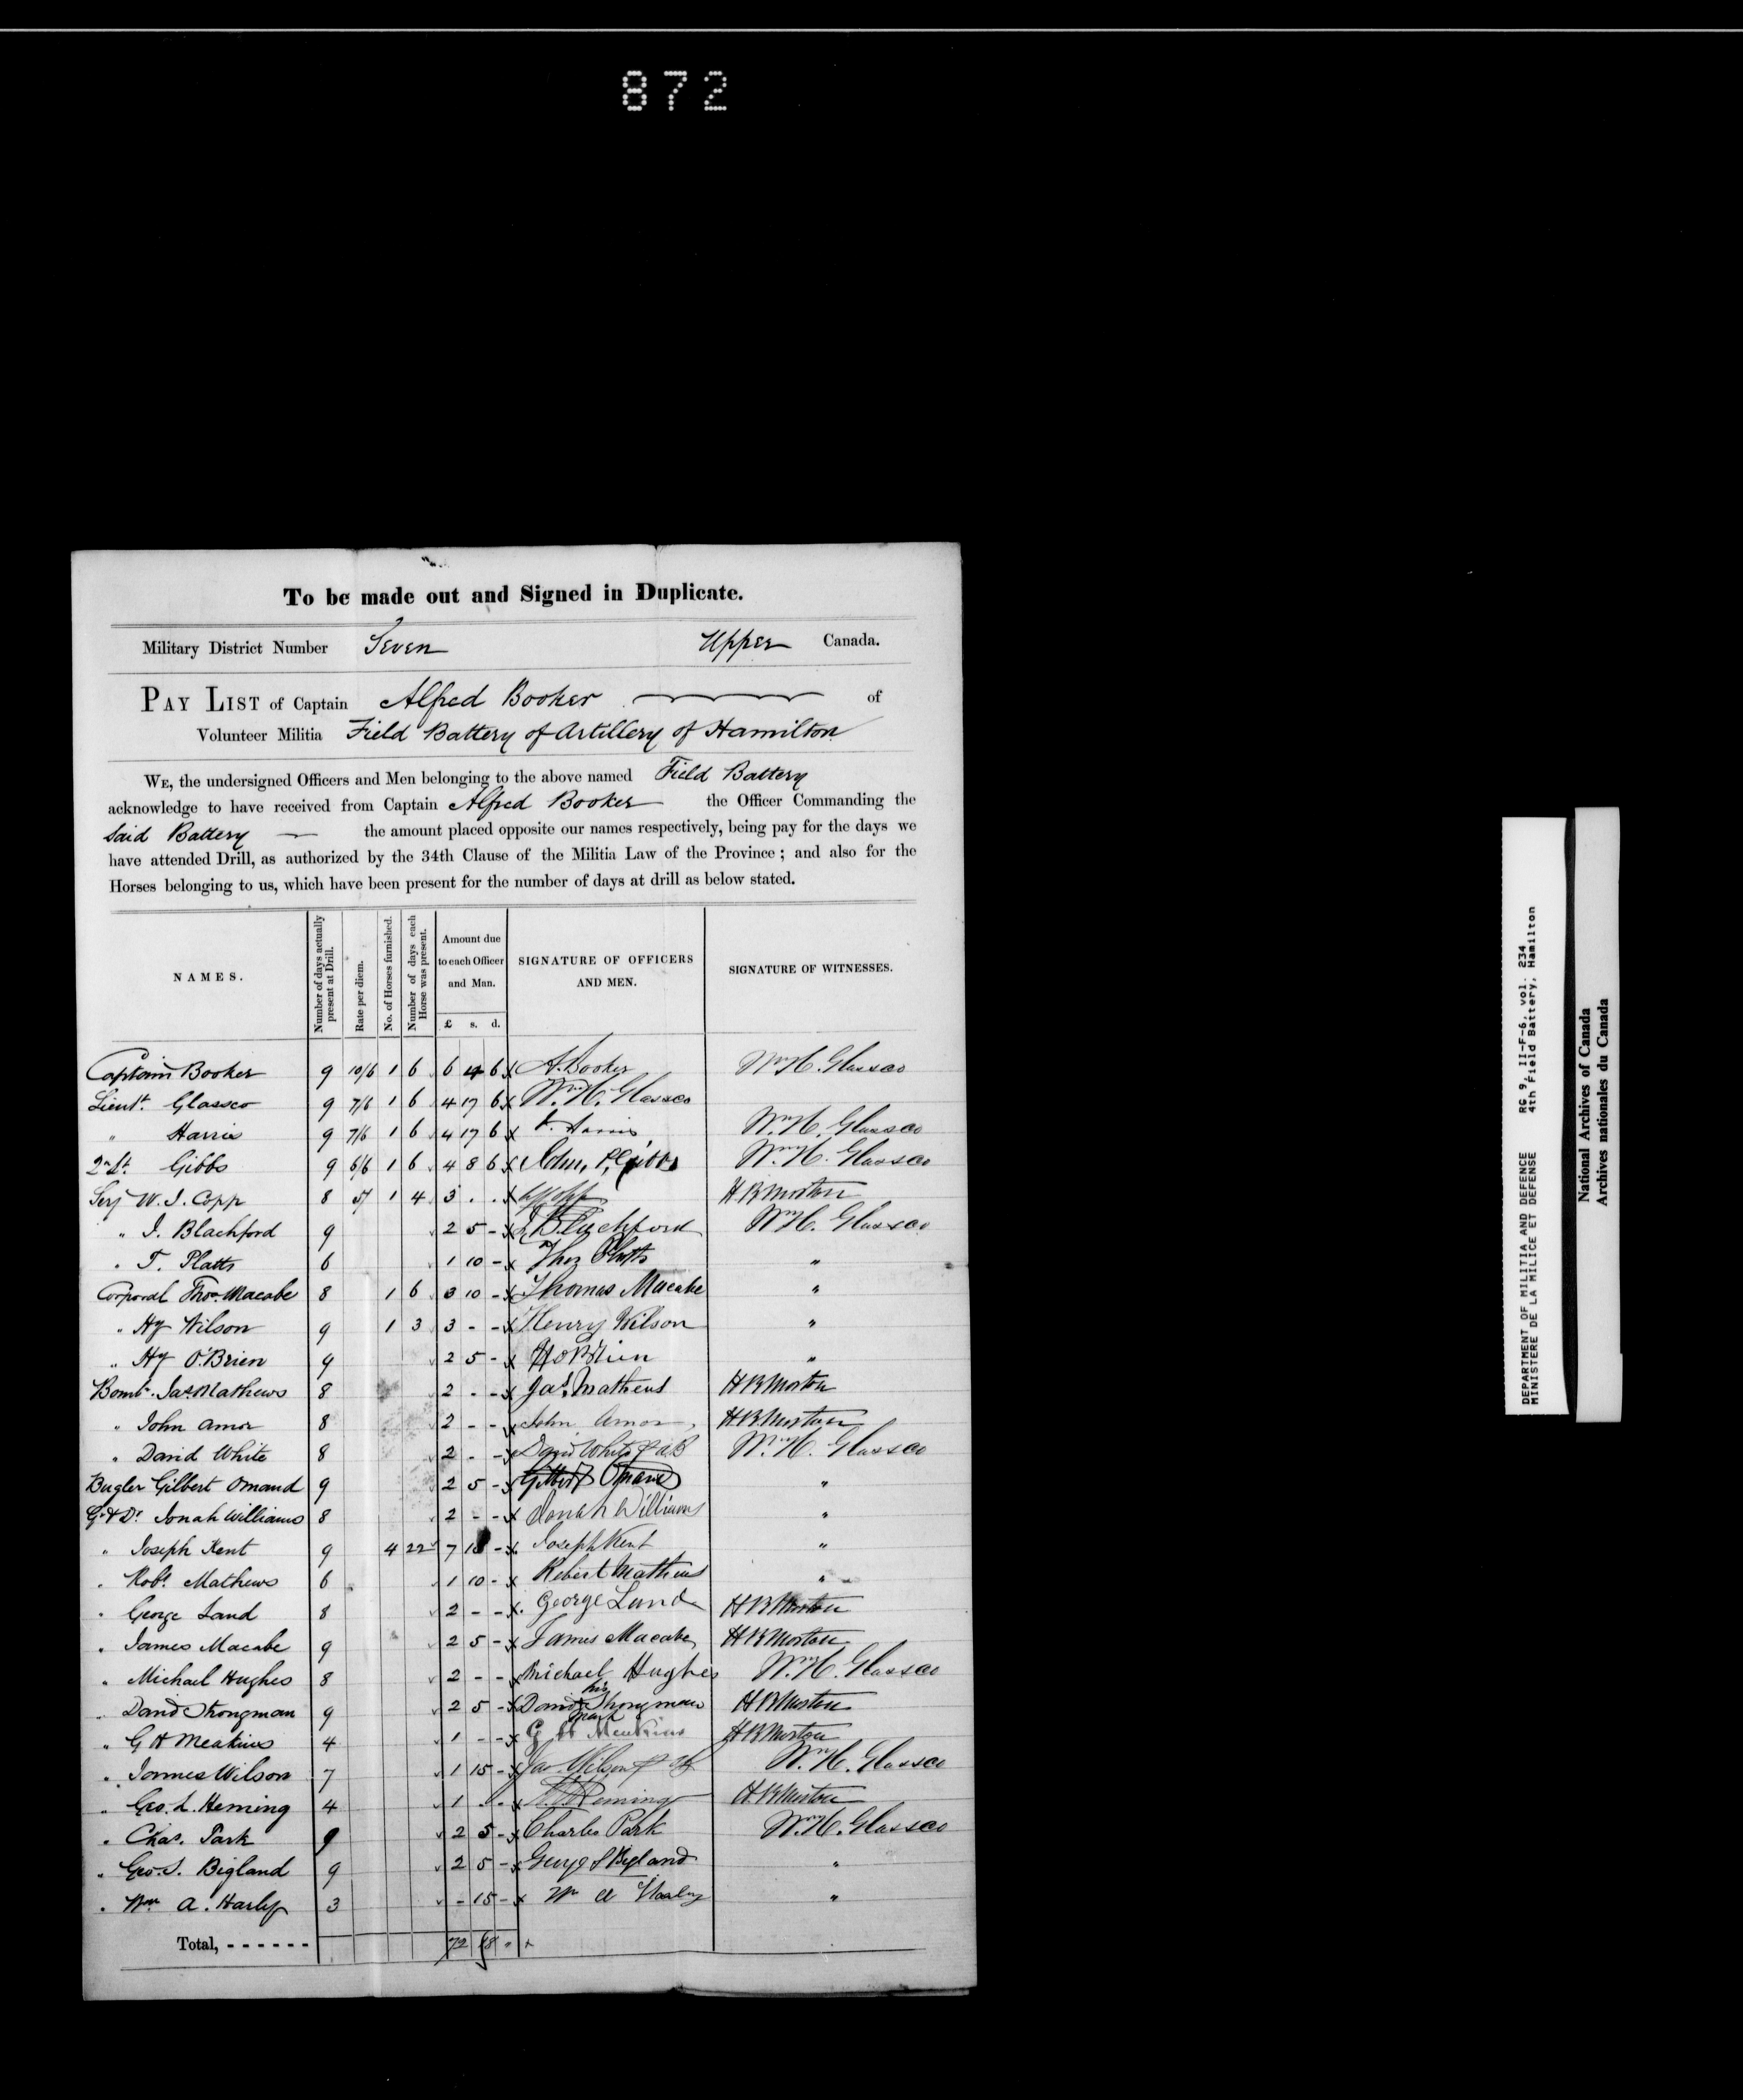 872
To be made out and Signed in Duplicate.
Military District Number Seven Upper Canada.
PAY LIST of Captain Alfred Booker of
Volunteer Militia Field Battery of Artillery of Hamilton
WE, the undersigned Officers and Men belonging to the above named Field Battery
acknowledge to have received from Captain Alfred Booker the Officer Commanding the
Said Battery — the amount placed opposite our names respectively, being pay for the days we
have attended Drill, as authorized by the 34th Clause of the Militia Law of the Province; and also for the
Horses belonging to us, which have been present for the number of days at drill as below stated.
NAMES.
Number of days actually present at Drill.
Rate per diem.
No. of Horses furnished.
Number of days each Horse was present.
Amount due to each Officer and Man.
£ s. d.
SIGNATURE OF OFFICERS AND MEN.
SIGNATURE OF WITNESSES.
Captain Booker 9 10/6 1 6 6 4 6 x A. Booker Wm H. Glassco
Lieut. Glassco 9 7/6 1 6 4 17 6 x Wm H. Glassco
" Harris 9 7/6 1 6 4 17 6 x Harris Wm H. Glassco
2n Lt. Gibbs 9 6/6 1 6 4 8 6 x John P. Gibbs Wm H. Glassco
Serj W. J. Copp 8 5/ 1 4 3 . . x Copp H B Morton
" J. Blachford 9 2 5 - x Blachford Wm H. Glassco
" T. Platts 6 1 10 - x Thos Platts "
Corporal Thos. Macabe 8 1 6 3 10 - x Thomas Macabe "
" Hy Wilson 9 1 3 3 - - x Henry Wilson "
" Hy O'Brien 9 2 5 - x H O'Brien "
Bombr. Jas. Mathews 8 2 - - x Jas. Mathews H B Morton
" John Amor 8 2 - - x John Amor H B Morton
" David White 8 2 - - x David White Wm H. Glassco
Bugler Gilbert Omand 9 2 5 - x Gilbert Omand "
G & Dr. Jonah Williams 8 2 - - x Jonah Williams "
" Joseph Kent 9 4 22 7 - x Joseph Kent "
" Robt. Mathews 6 1 10 - x Robert Mathews "
" George Land 8 2 - - x George Land H B Morton
" James Macabe 9 2 5 - x James Macabe H B Morton
" Michael Hughes 8 2 - - x Michael Hughes Wm H. Glassco
" David Strongman 9 2 5 - x David his mark Strongman H B Morton
" G H Meakins 4 1 - - x G H Meakins H B Morton
" James Wilson 7 1 15 - x Jas. Wilson Wm H. Glassco
" Geo. L. Heming 4 1 - - x Heming H B Morton
" Chas. Park 9 2 5 - x Charles Park Wm H. Glassco
" Geo. S. Bigland 9 2 5 - x George S Bigland "
" Wm. A. Harley 3 - 15 - x Wm A Harley "
Total, - - - - - - 72 18 "
DEPARTMENT OF MILITIA AND DEFENCE RG 9, II-F-6, vol. 234
MINISTERE DE LA MILICE ET DEFENSE 4th Field Battery, Hamilton
National Archives of Canada
Archives nationales du Canada